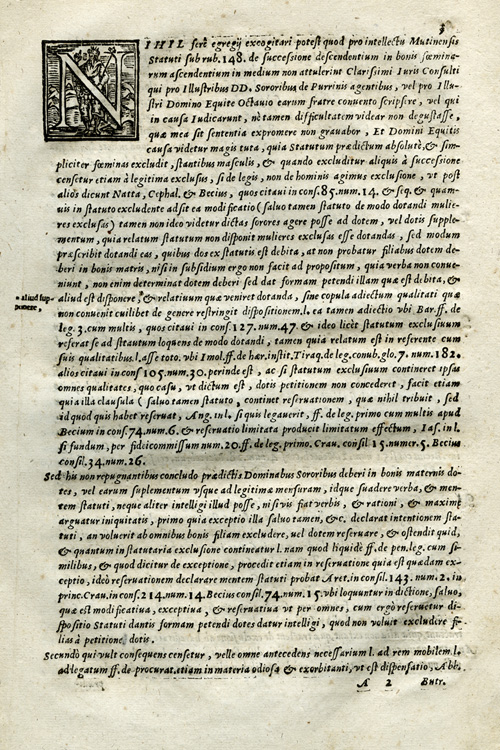 3
NIHIL ferè egregij excogitari potest quod pro intellectu Mutinensis
Statuti sub rub. 148. de successione descendentium in bonis fœmina-
rum ascendentium in medium non attulerint Clarissimi Iuris Consulti
qui pro Illustribus DD. Sororibus de Purrinis agentibus, vel pro Illu-
stri Domino Equite Octauio earum fratre conuento scripsere, vel qui
in causa Iudicarunt, nè tamen difficultatem videar non degustasse,
quæ mea sit sententia expromere non grauabor, Et Domini Equitis
causa videtur magis tuta, quia Statutum prædictum absolutè, & sim-
pliciter fœminas excludit, stantibus masculis, & quando excluditur aliquis à successione
censetur etiam à legitima exclusus, si de legis, non de hominis agimus exclusione, vt post
alios dicunt Natta, Cephal. & Becius, quos citaui in cons. 85. num. 14. & seq. & quam-
uis in statuto excludente adsit ea modificatio (saluo tamen statuto de modo dotandi mulie-
res exclusas) tamen non ideo videtur dictas sorores agere posse ad dotem, vel dotis supple-
mentum, quia relatum statutum non disponit mulieres exclusas esse dotandas, sed modum
præscribit dotandi eas, quibus dos ex statutis est debita, at non probatur filiabus dotem de-
beri in bonis matris, nisi in subsidium ergo non facit ad propositum, quia verba non conue-
niunt, non enim determinat dotem deberi sed dat formam petendi illam quæ est debita, &
* aliud est disponere, & relatiuum quæ veniret dotanda, sine copula adiectum qualitati quæ
* aliud sup-
ponere,
non conuenit cuilibet de genere restringit dispositionem. l. ea tamen adiectio vbi Bar. ff. de
leg. 3. cum multis, quos citaui in cons. 127. num. 47. & ideo licèt statutum exclusiuum
referat se ad statutum loquens de modo dotandi, tamen quia relatum est in referente cum
suis qualitatibus l. asse toto. vbi Imol. ff. de hær. instit. Tiraq. de leg. conub. glo. 7. num. 182.
alios citaui in cons 105. num. 30. perinde est, ac si statutum exclusiuum contineret ipsas
omnes qualitates, quo casu, vt dictum est, dotis petitionem non concederet, facit etiam
quia illa clausula (saluo tamen statuto, continet reseruationem, quæ nihil tribuit, sed
id quod quis habet reseruat, Ang. in l. si quis legauerit, ff. de leg. primo cum multis apud
Becium in cons. 74. num. 6. & reseruatio limitata producit limitatum effectum, Ias. in l.
si fundum, per fideicommissum num. 20. ff. de leg. primo. Crau. consil 15. numer. 5. Becius
consil. 34. num. 26.
Sed his non repugnantibus concludo prædictis Dominabus Sororibus deberi in bonis maternis do-
tes, vel earum suplementum vsque ad legitimæ mensuram, idque suadere verba, & men-
tem statuti, neque aliter intelligi illud posse, nisi vis fiat verbis, & rationi, & maximæ
arguatur iniquitatis, primo quia exceptio illa saluo tamen, &c. declarat intentionem sta-
tuti, an voluerit ab omnibus bonis filiam excludere, uel dotem reseruare, & ostendit quid,
& quantum in statutaria exclusione contineatur l. nam quod liquidè ff. de pen. leg. cum si-
milibus, & quod dicitur de exceptione, procedit etiam in reseruatione quia est quædam ex-
ceptio, ideò reseruationem declarare mentem statuti probat Aret. in cons. 143. num. 2. in
princ. Crau. in cons. 214. num. 14. Becius consil. 74. num. 15. vbi loquuntur in dictione, saluo,
quæ est modificatiua, exceptiua, & reseruatiua vt per omnes, cum ergò reseruetur di-
spositio Statuti dantis formam petendi dotes datur intelligi, quod non voluit excludere fi-
lias à petitione dotis.
Secundò qui vult consequens censetur, velle omne antecedens necessarium l. ad rem mobilem l.
ad legatum ff. de procurat. etiam in materia odiosa & exorbitanti, vt est dispensatio, Abb.
A 2 Butr.